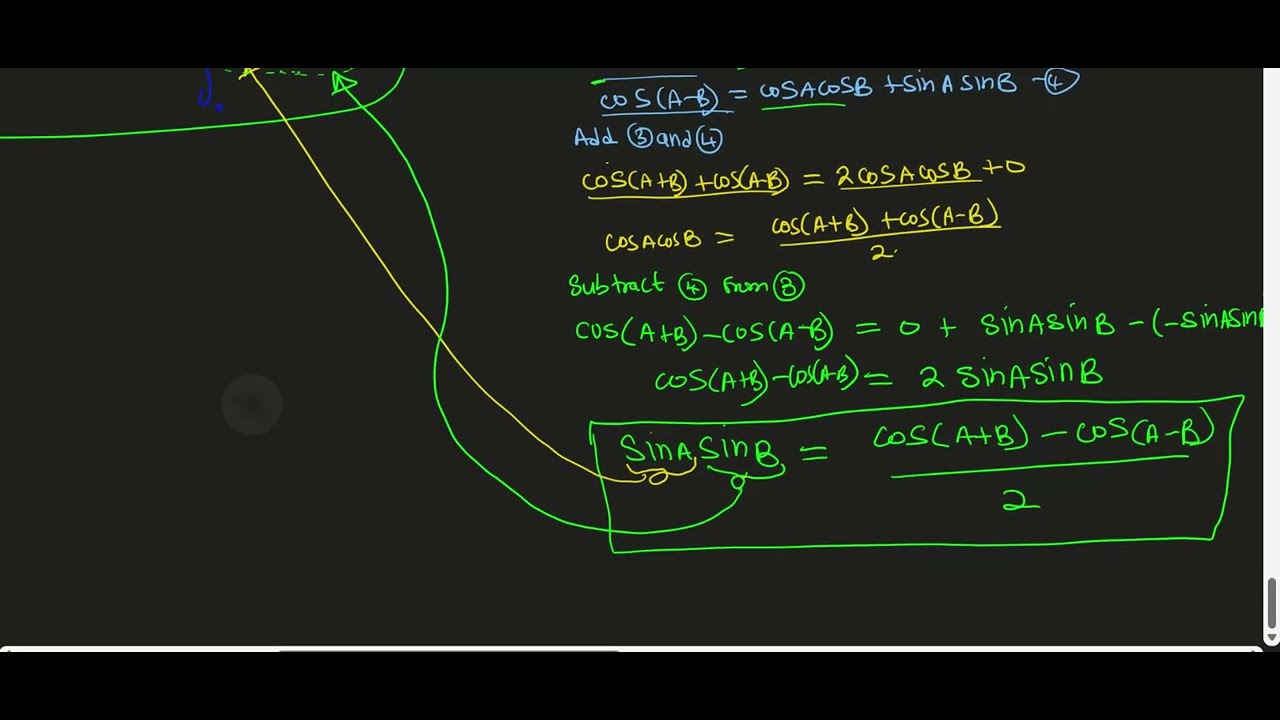 cos(A-B) = cosAcosB +sinAsinB -④
Add ③and④
cos(A+B)+cos(A-B) = 2cosAcosB +0
cosAcosB = cos(A+B) +cos(A-B)
2
Subtract ④ from ③
cos(A+B)-cos(A-B) = 0 + sinAsinB -(-sinAsin
cos(A+B)-cos(A-B) = 2 sinAsinB
sinAsinB = cos(A+B) - cos(A-B)
2